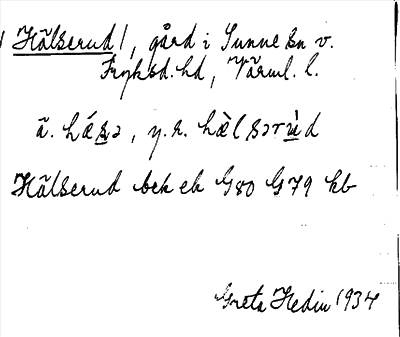 Hälserud/, gård i Sunne sn v.
Fryksd. hd, Värml. l.
ä. hǽsə, y. k. hæ̀lsərùd
Hälserud bek ek G80 G79 kb
Greta Hedin 1934